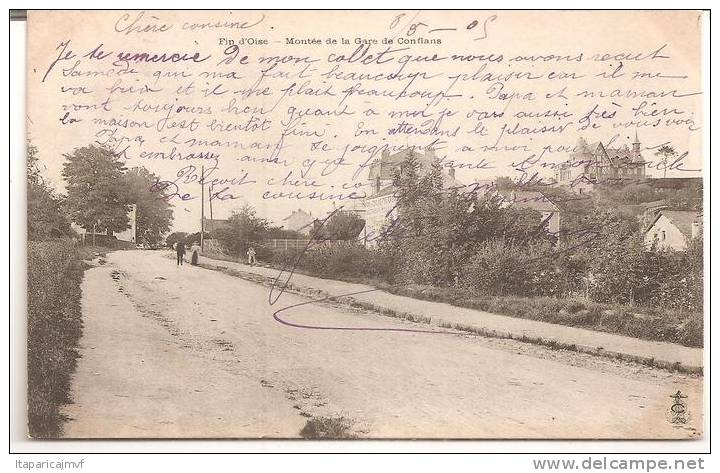 Chère cousine 8/5 - 05
Fin d'Oise - Montée de la Gare de Conflans
Je te remercie de mon collet que nous avons recut
Samedi qui ma fait beaucoup plaisir car il me
va bien et je me plait beaucoup. Papa et maman
vont toujours bien quant à moi je vais aussi très bien
la maison est bientôt fini. En attendant le plaisir de vous voir
Papa et maman se joignent à moi pour
embrasser ainsi que tante
Reçoit chère
De la cousine
Itaparicajmvf
http://www.delcampe.net